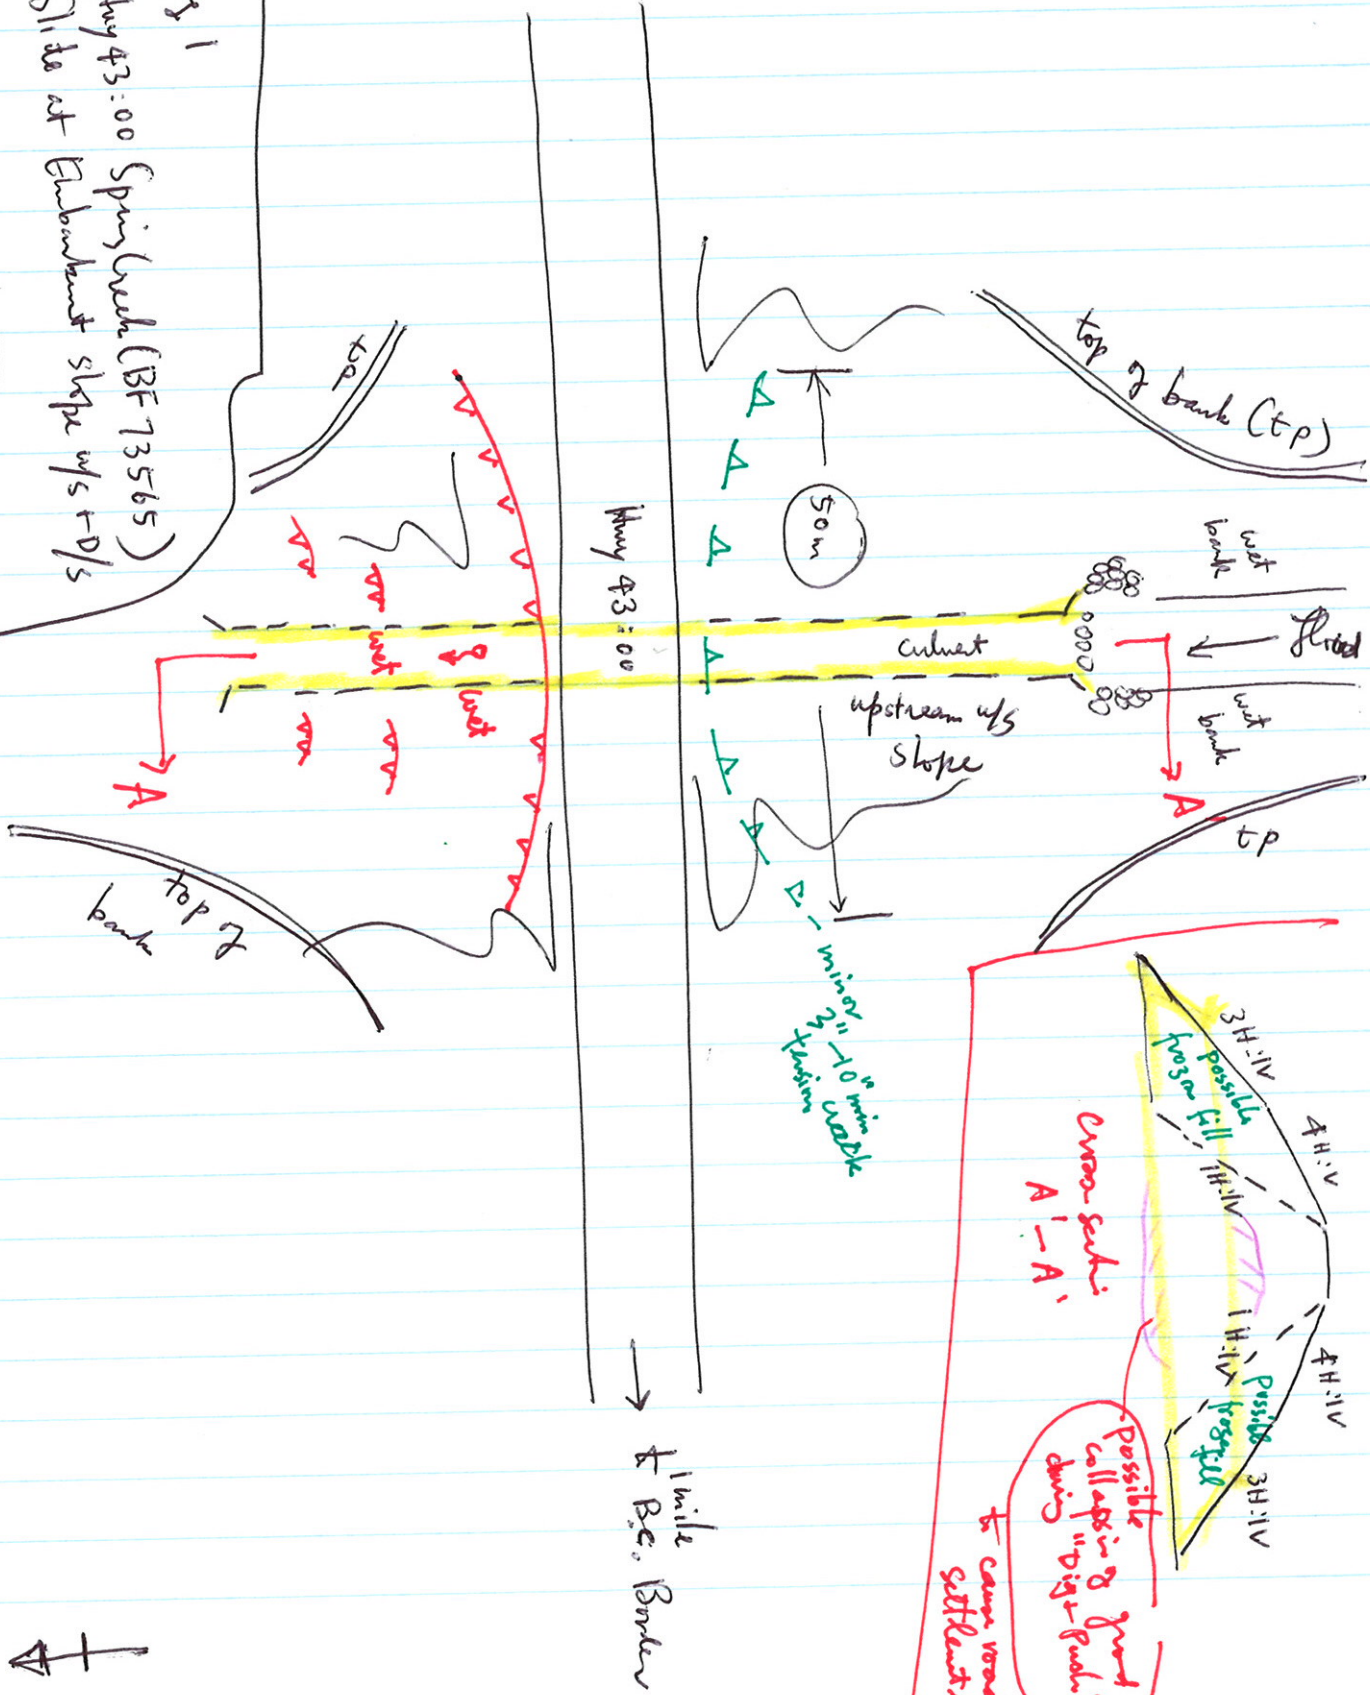 Hwy 43:00 Spring Creek (BF 73565)
Slide at Embankment slope u/s + D/s
tp
top of bank (tp)
50m
wet
bank
flow
wet
bank
culvert
upstream u/s
slope
Hwy 43:00
wet
wet
A
A'
tp
top of
bank
minor
tension crack
1 mile
to B.C. Border
3H:1V
4H:V
4H:1V
3H:1V
possible
frozen fill
1H:1V
1H:1V
possible
frozen fill
Cross secti.
A' - A'
possible
collapsing
during "Dig + Push
to cause road
settlement